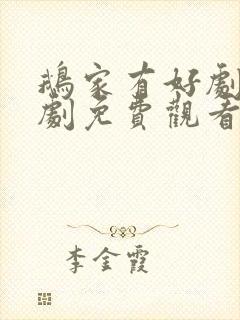 鵝家有好劇
劇免費觀看
李金霞